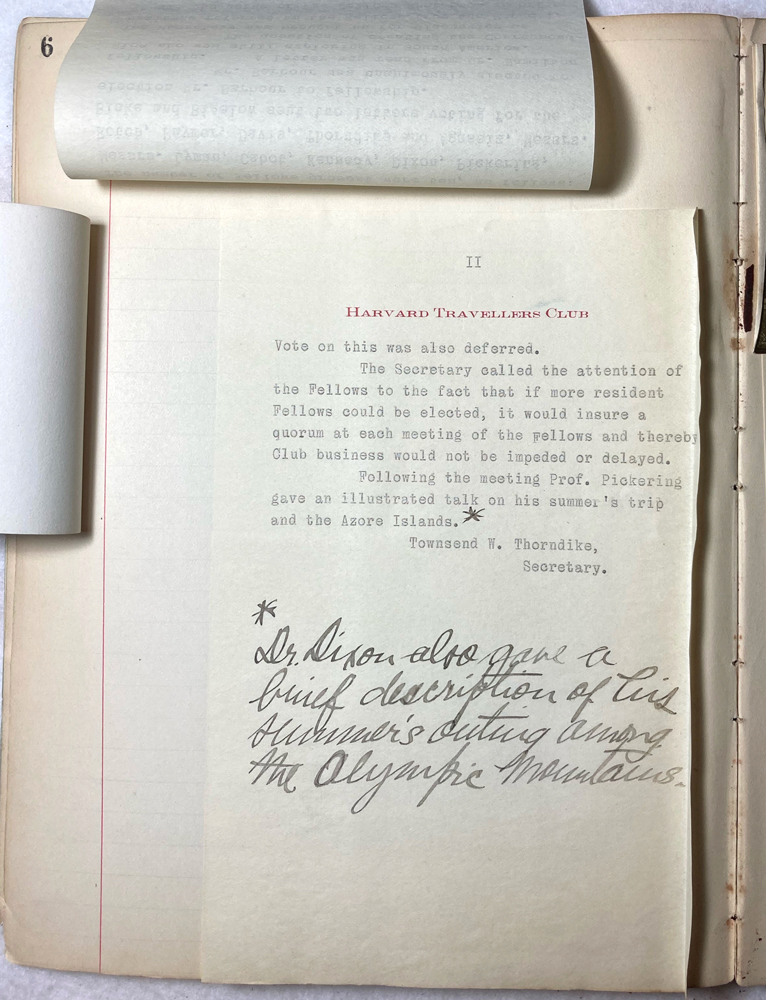 6
II
HARVARD TRAVELLERS CLUB
Vote on this was also deferred.
The Secretary called the attention of
the Fellows to the fact that if more resident
Fellows could be elected, it would insure a
quorum at each meeting of the Fellows and thereby
Club business would not be impeded or delayed.
Following the meeting Prof. Pickering
gave an illustrated talk on his summer's trip
and the Azore Islands.*
Townsend W. Thorndike,
Secretary.
*
Dr. Dixon also gave a
brief description of his
summer's outing among
the Olympic Mountains.